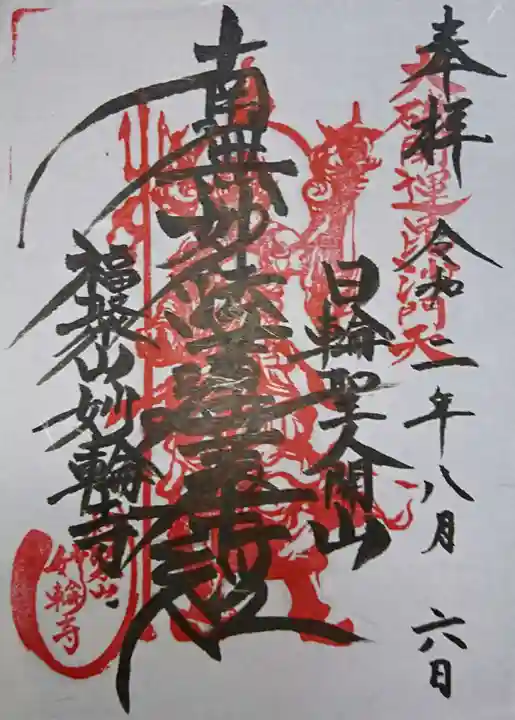 奉拝 令和二年八月 六日
大破開運毘沙門天
日輪聖人開山
南無妙法蓮華経
福聚山妙輪寺
妙輪寺